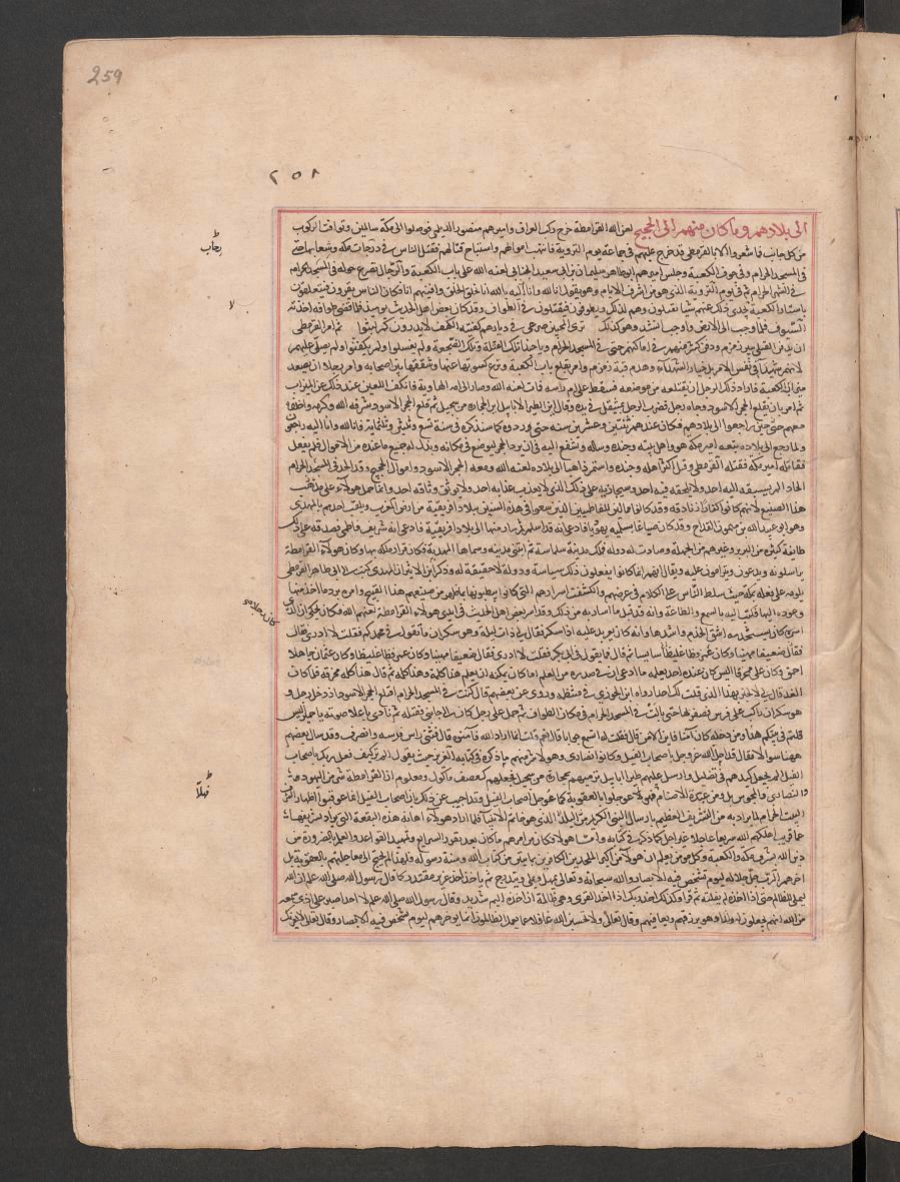 259
٢٥٨
الى بلادهم وما كان منهم الى الحجيج لعنهم الله القرامطة خرج ركب العراق واميرهم منصور الديلمي فوصلوا الى مكة سالمين وتوافت الركوب
من كل جانب فما شعروا الا بالقرمطي قد خرج عليهم في جماعته يوم التروية فانتهب اموالهم واستباح قتالهم فقتل الناس في رحاب مكة وشعابها حتى
في المسجد الحرام وفي جوف الكعبة وجلس اميرهم ابو طاهر سليمان بن ابي سعيد الجنابي لعنه الله على باب الكعبة والرجال تصرع حوله في المسجد الحرام
في الشهر الحرام ثم في يوم التروية الذي هو من اشرف الايام وهو يقول انا لله وبالله انا انا اخلق الخلق وافنيهم انا فكان الناس يفرون فيتعلقون
باستار الكعبة فلا يجدي ذلك عنهم شيئا بل يقتلون وهم كذلك ويطوفون فيقتلون في الطواف وقد كان بعض اهل الحديث يومئذ يطوف فلما قضى طوافه اخذته
السيوف فلما وجب الى الارض انشد وهو كذلك ترى المحبين صرعى في ديارهم كفتية الكهف لا يدرون كم لبثوا ثم امر القرمطي
ان يدفن القتلى ببئر زمزم ودفن كثير منهم في اماكنهم حتى في المسجد الحرام ويا حبذا تلك القتلة وتلك الضجعة ولم يغسلوا ولم يكفنوا ولم يصل عليهم
لانهم شهداء في نفس الامر بل خيار الشهداء وهدم قبة زمزم وامر بقلع باب الكعبة ونزع كسوتها عنها وشققها بين اصحابه وامر رجلا ان يصعد
ميزاب الكعبة فاراد ذلك الرجل ان يقتلعه من موضعه فسقط على ام راسه فمات لعنه الله وصار الى امه الهاوية فانكف اللعين عند ذلك عن الميزاب
ثم امر بان يقلع الحجر الاسود وجاءه رجل فضرب الحجر بمثقل في يده وقال اين الطير الابابيل اين الحجارة من سجيل ثم قلع الحجر الاسود شرفه الله وكرمه واخذوه
معهم حتى حين راجعوا الى بلادهم فكان عندهم ثنتين وعشرين سنة حتى ردوه كما سنذكره في سنة تسع وثلثين وثلثمائة فانا لله وانا اليه راجعون
ولما رجع الى بلاده تبعه امير مكة هو واهل بيته وجنده وساله وتشفع اليه في ان يرد الحجر ليوضع في مكانه وبذل له جميع ما عنده من الاموال فلم يفعل
فقاتله امير مكة فقتله القرمطي وقتل اكثر اهله وجنده واستمر ذاهبا الى بلاده لعنه الله ومعه الحجر الاسود واموال الحجيج وقد الحد في المسجد الحرام
الحادا لم يسبقه اليه احد ولا يلحقه فيه احد وسيجازيه على ذلك الذي لا يعذب عذابه احد ولا يوثق وثاقه احد وانما حمل هولاء على
هذا الصنيع لانهم كانوا كفارا زنادقة وقد كانوا ممالئين للفاطميين الذين نبغوا في هذه السنين ببلاد افريقية من ارض المغرب ويلقب احدهم بالمهدي
وهو ابو عبيد الله بن ميمون القداح وقد كان صباغا بسلمية يهوديا فادعى انه قد اسلم ثم سار منها الى بلاد افريقية فادعى انه شريف فاطمي فصدقه على ذلك
طايفة كثيرة من البربر وغيرهم من الجهلة وصارت له دولة فملك مدينة سجلماسة ثم ابتنى مدينة وسماها المهدية وكان قرار ملكه بها وكان هولاء القرامطة
يراسلونه ويدعون ويترامون عليه ويقال انهم انما كانوا يفعلون ذلك سياسة ودولة لا حقيقة له وذكر ابن الاثير ان المهدي كتب الى ابي طاهر القرمطي
يلومه على فعله بمكة حيث سلط الناس على الكلام في عرضهم وانكشفت اسرارهم التي كانوا يبطنونها بما ظهر من صنيعهم هذا القبيح وامره برد ما اخذه منها
وعوده اليها فكتب اليه بالسمع والطاعة وانه قد قبل ما اشار به من ذلك وقد اسر بعض اهل الحديث في ايدي هولاء القرامطة لعنهم الله فكان يحكي ان الذي
اسره كان يستخدمه اشق الخدم واشدها وانه كان يعربد عليه اذا سكر فقال لي ذات ليلة وهو سكران ما تقول في محمدكم فقلت لا ادري فقال
فقال ضعيفا مهينا وكان عمر فظا غليظا ثم قال فما تقول في ابي بكر فقلت لا ادري فقال ضعيفا مهينا وكان عمر فظا غليظا وكان عثمان جاهلا
احمق وكان علي ممخرقا اليس كان عنده احد يعلمه ما ادعى ان في صدره من العلم اما كان يمكنه ان يعلم هذا كلمة وهذا كلمة ثم قال هذا كله مخرقة فلما كان
الغد قال لي لا تخبر بهذا الذي قلت لك احدا رواه ابن الجوزي في منتظمه وروى عن بعضهم قال كنت في المسجد الحرام اذ دخل رجل و
هو سكران راكب على فرس فصفر لها حتى بالت في المسجد الحرام في مكان الطواف ثم حمل على رجل كان الى جانبي فقتله ثم نادى باعلا صوته يا حمير اليس
قلتم في بيتكم هذا ومن دخله كان آمنا فاين الامن قال فقلت له اتسمع جوابا قال نعم قلت انما اراد الله فآمنوه قال فثنى راس فرسه وانصرف وقد سال بعضهم
ههنا سوالا فقال قد احل الله عز وجل باصحاب الفيل وكانوا نصارى وهولاء شر منهم ما ذكره في كتابه العزيز حيث يقول الم تر كيف فعل ربك باصحاب
الفيل الم يجعل كيدهم في تضليل وارسل عليهم طيرا ابابيل ترميهم بحجارة من سجيل فجعلهم كعصف ماكول ومعلوم ان القرامطة شر من اليهود و
النصارى والمجوس بل ومن عبدة الاصنام فهلا عوجلوا بالعقوبة كما عوجل اصحاب الفيل وقد اجيب عن ذلك بان اصحاب الفيل انما عوقبوا اظهارا لشرف
البيت الحرام لما يراد به من التشريف العظيم بارسال النبي الكريم من البلد الذي هو خاتم الانبياء فلما ارادوا هولاء اهانة هذه البقعة التي يراد تشريفها
عما قريب اهلكهم الله سريعا عاجلا غير آجل كما ذكر في كتابه واما هولاء فكان من امرهم ما كان بعد تقرر الشرايع وتمهيد القواعد والعلم بالضرورة من
دين الله بشرف مكة والكعبة وكل مومن يعلم ان هولاء من اكبر الملحدين الكافرين بما تبين من كتاب الله وسنة رسوله فلهذا لم يحتج الى معاجلتهم بالعقوبة بل
اخرهم الرب جل جلاله ليوم تشخص فيه الابصار والله سبحانه وتعالى يمهل ويملي ويستدرج ثم ياخذ اخذ عزيز مقتدر كما قال رسول الله صلى الله عليه ان الله
ليملي للظالم حتى اذا اخذه لم يفلته ثم قرا وكذلك اخذ ربك اذا اخذ القرى وهي ظالمة ان اخذه اليم شديد وقال رسول الله صلى الله عليه لا احد اصبر على اذى سمعه
من الله انهم يجعلون له ولدا وهو يرزقهم ويعافيهم وقال تعالى ولا تحسبن الله غافلا عما يعمل الظالمون انما يوخرهم ليوم تشخص فيه الابصار وقال تعالى لا يغرنك
رحاب
لا
فهلا